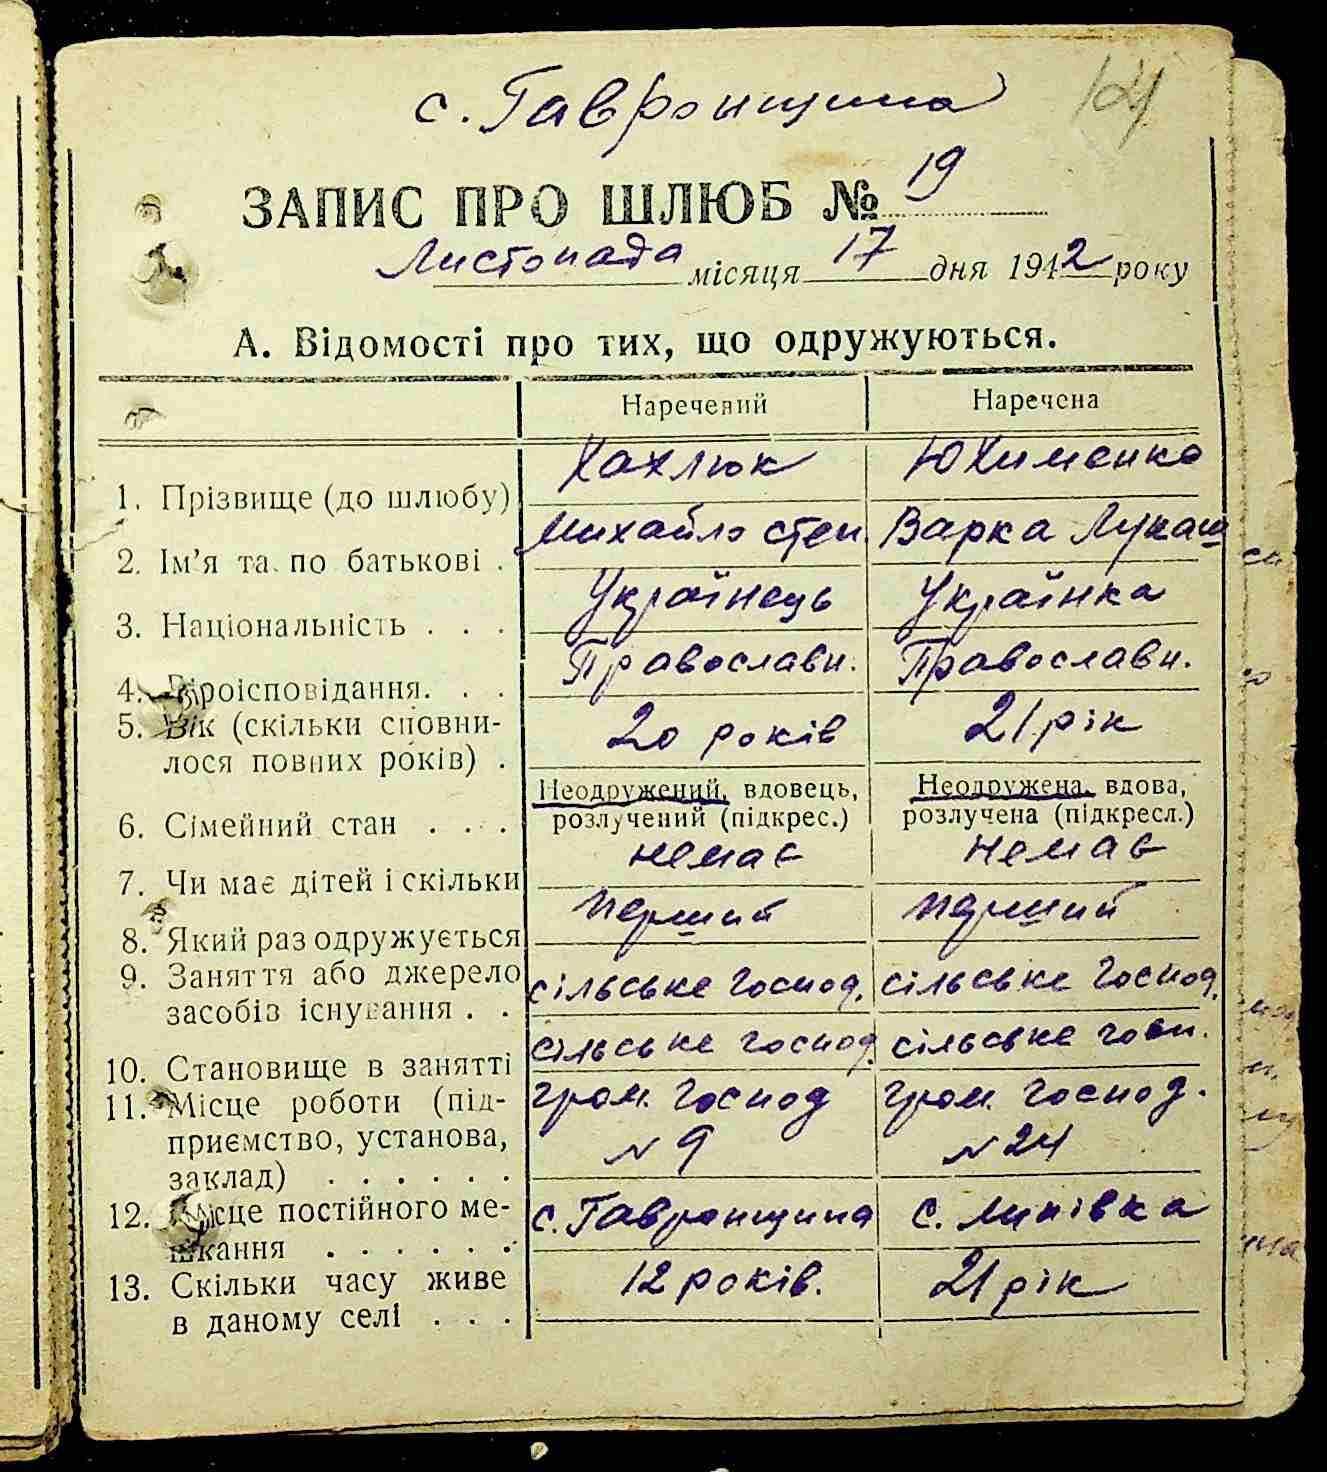 с. Гавронщина
124
ЗАПИС ПРО ШЛЮБ № 19
Листопада місяця 17 дня 1942 року
А. Відомості про тих, що одружуються.
Наречений Наречена
1. Прізвище (до шлюбу) Хахлюк Юхименко
2. Ім’я та по батькові . Михайло Степ Варка Лукаш
3. Національність . . . Українець Українка
4. Віроісповідання. . . Православн. Православн.
5. Вік (скільки сповни-
лося повних років) . 20 років 21 рік
6. Сімейний стан . . . Неодружений, вдовець, розлучений (підкрес.) Неодружена, вдова, розлучена (підкресл.)
7. Чи має дітей і скільки немає немає
8. Який раз одружується перший перший
9. Заняття або джерело
засобів існування . . сільське господ. сільське господ.
10. Становище в занятті сільське господ. сільське госп.
11. Місце роботи (під- гром. господ гром. господ.
приємство, установа, N 9 N 24
заклад) . . . . . .
12. Місце постійного ме- с. Гавронщина с. Липівка
шкання . . . . . .
13. Скільки часу живе 12 років. 21 рік
в даному селі . . .